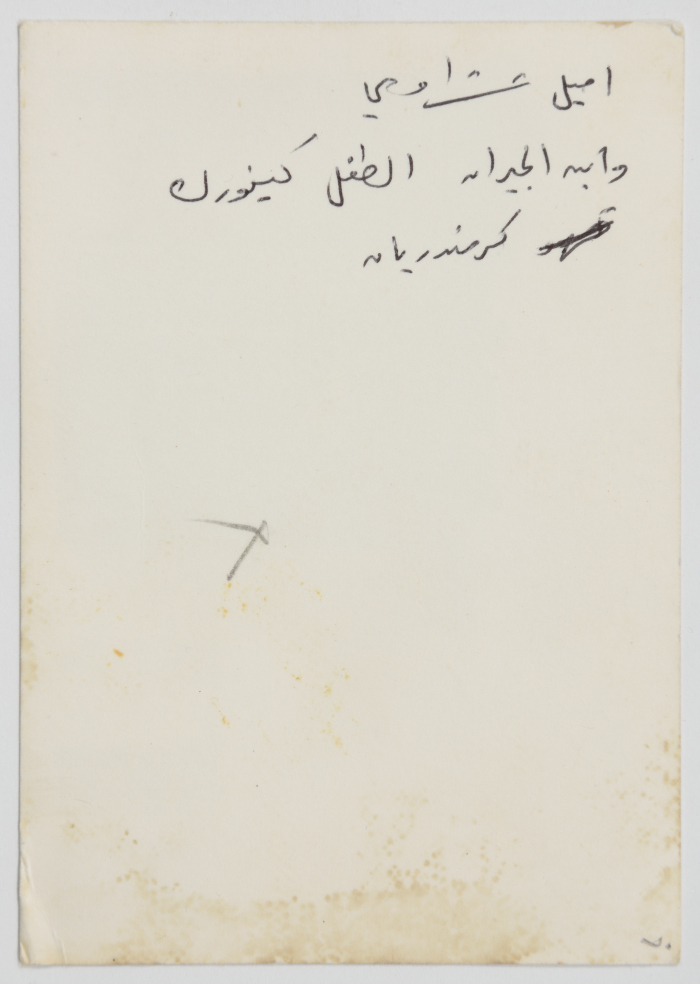 اميل عشراوي
وابن الجيران الطفل كيفورك
كرمندريان
٧٠